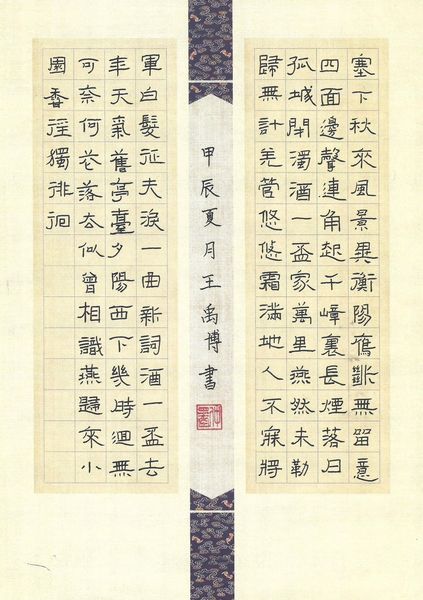 塞下秋來風景異衡陽鴈斷無留意
四面邊聲連角起千嶂裏長煙落日
孤城閉濁酒一盃家萬里燕然未勒
歸無計羌管悠悠霜滿地人不寐將
軍白髮征夫淚一曲新詞酒一盃去
年天氣舊亭臺夕陽西下幾時迴無
可奈何花落去似曾相識燕歸來小
園香徑獨徘徊
甲辰夏月王禹博書